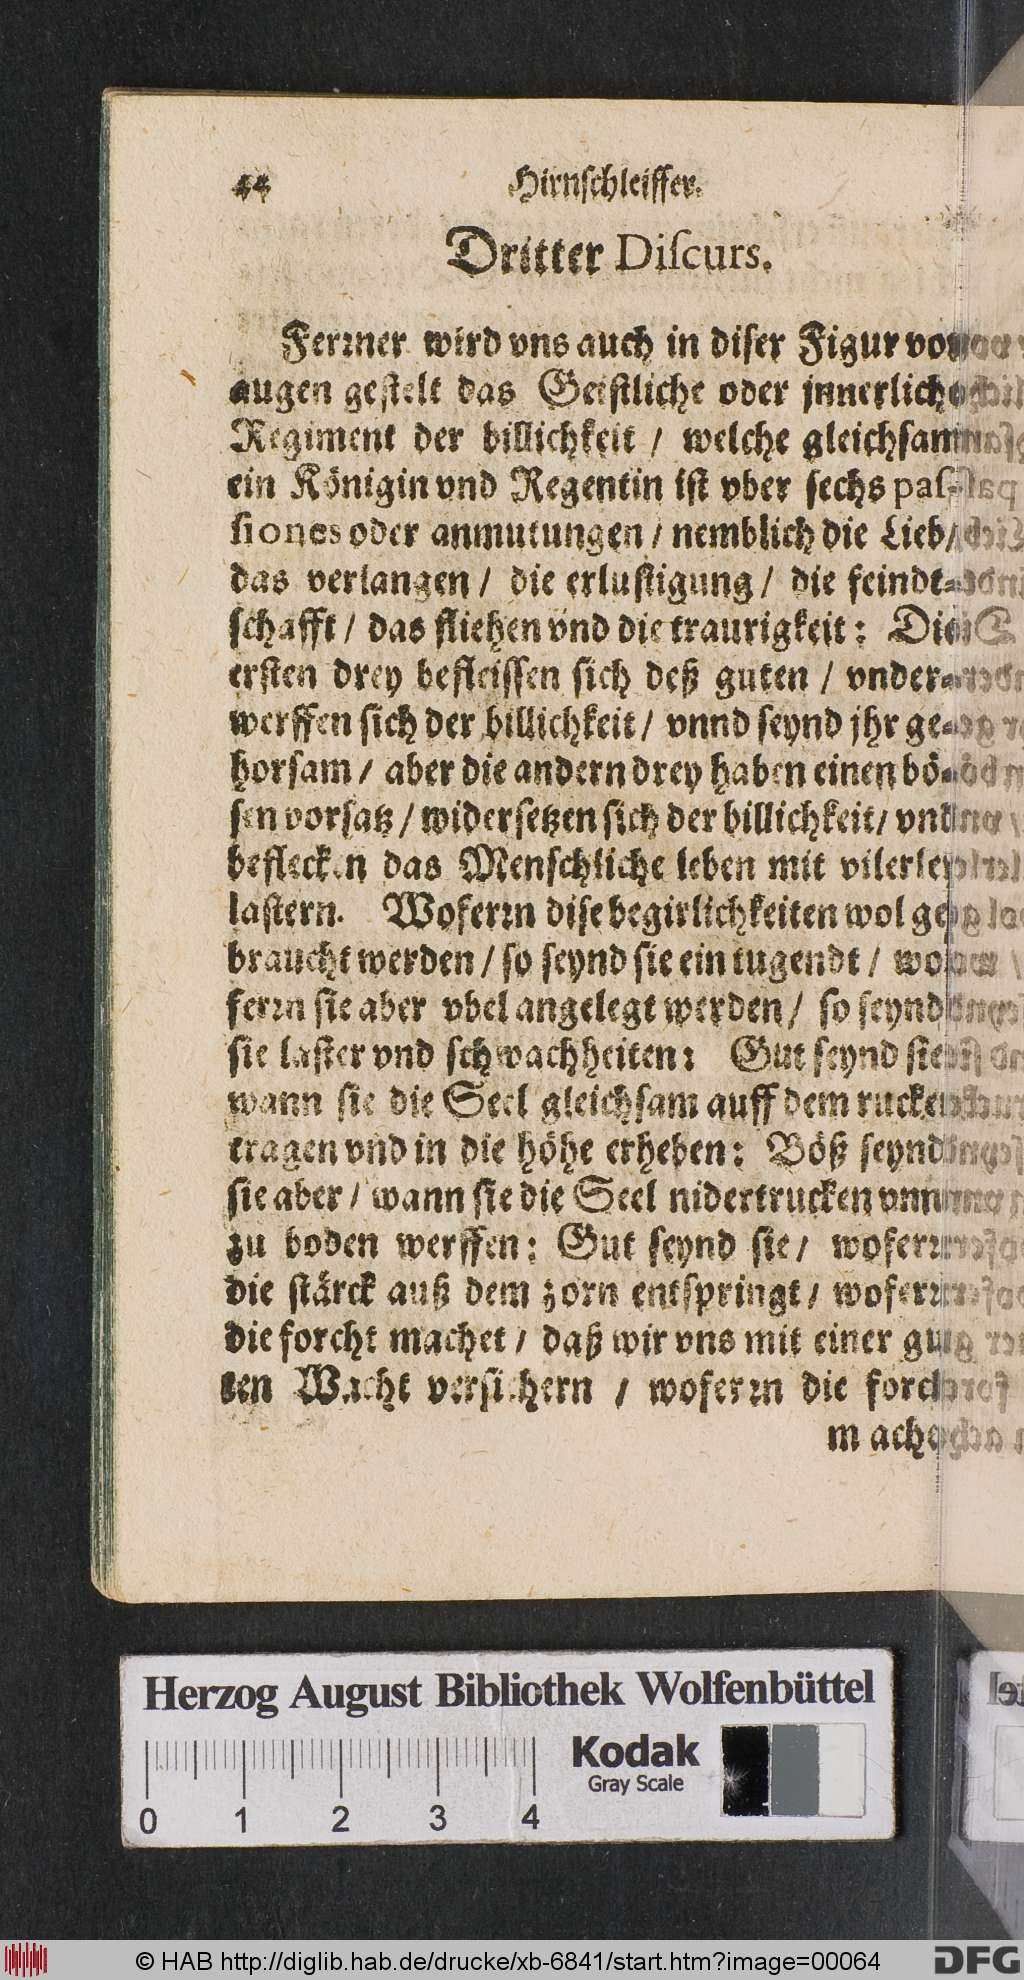 44 Hirnschleiffer.
Dritter Discurs.
Ferrner wird vns auch in diser Figur vor
augen gestelt das Geistliche oder jnnerliche
Regiment der billichkeit / welche gleichsam
ein Königin vnd Regentin ist vber sechs pas-
siones oder anmutungen / nemblich die Lieb /
das verlangen / die erlustigung / die feindt-
schafft / das fliehen vnd die traurigkeit: Die
ersten drey befleissen sich deß guten / vnder-
werffen sich der billichkeit / vnnd seynd jhr ge-
horsam / aber die andern drey haben einen bö-
sen vorsatz / widersetzen sich der billichkeit / vnd
beflecken das Menschliche leben mit vilerley
lastern. Woferrn dise begirlichkeiten wol ge-
braucht werden / so seynd sie ein tugendt / wo-
ferrn sie aber vbel angelegt werden / so seynd
sie laster vnd schwachheiten: Gut seynd sie
wann sie die Seel gleichsam auff dem rucken
tragen vnd in die höhe erheben: Böß seynd
sie aber / wann sie die Seel nidertrucken vnnd
zu boden werffen: Gut seynd sie / woferrn
die stärck auß dem zorn entspringt / woferrn
die forcht machet / daß wir vns mit einer gu-
ten Wacht versichern / woferrn die forcht
mach
Herzog August Bibliothek Wolfenbüttel
Kodak
Gray Scale
0 1 2 3 4
© HAB http://diglib.hab.de/drucke/xb-6841/start.htm?image=00064
DFG